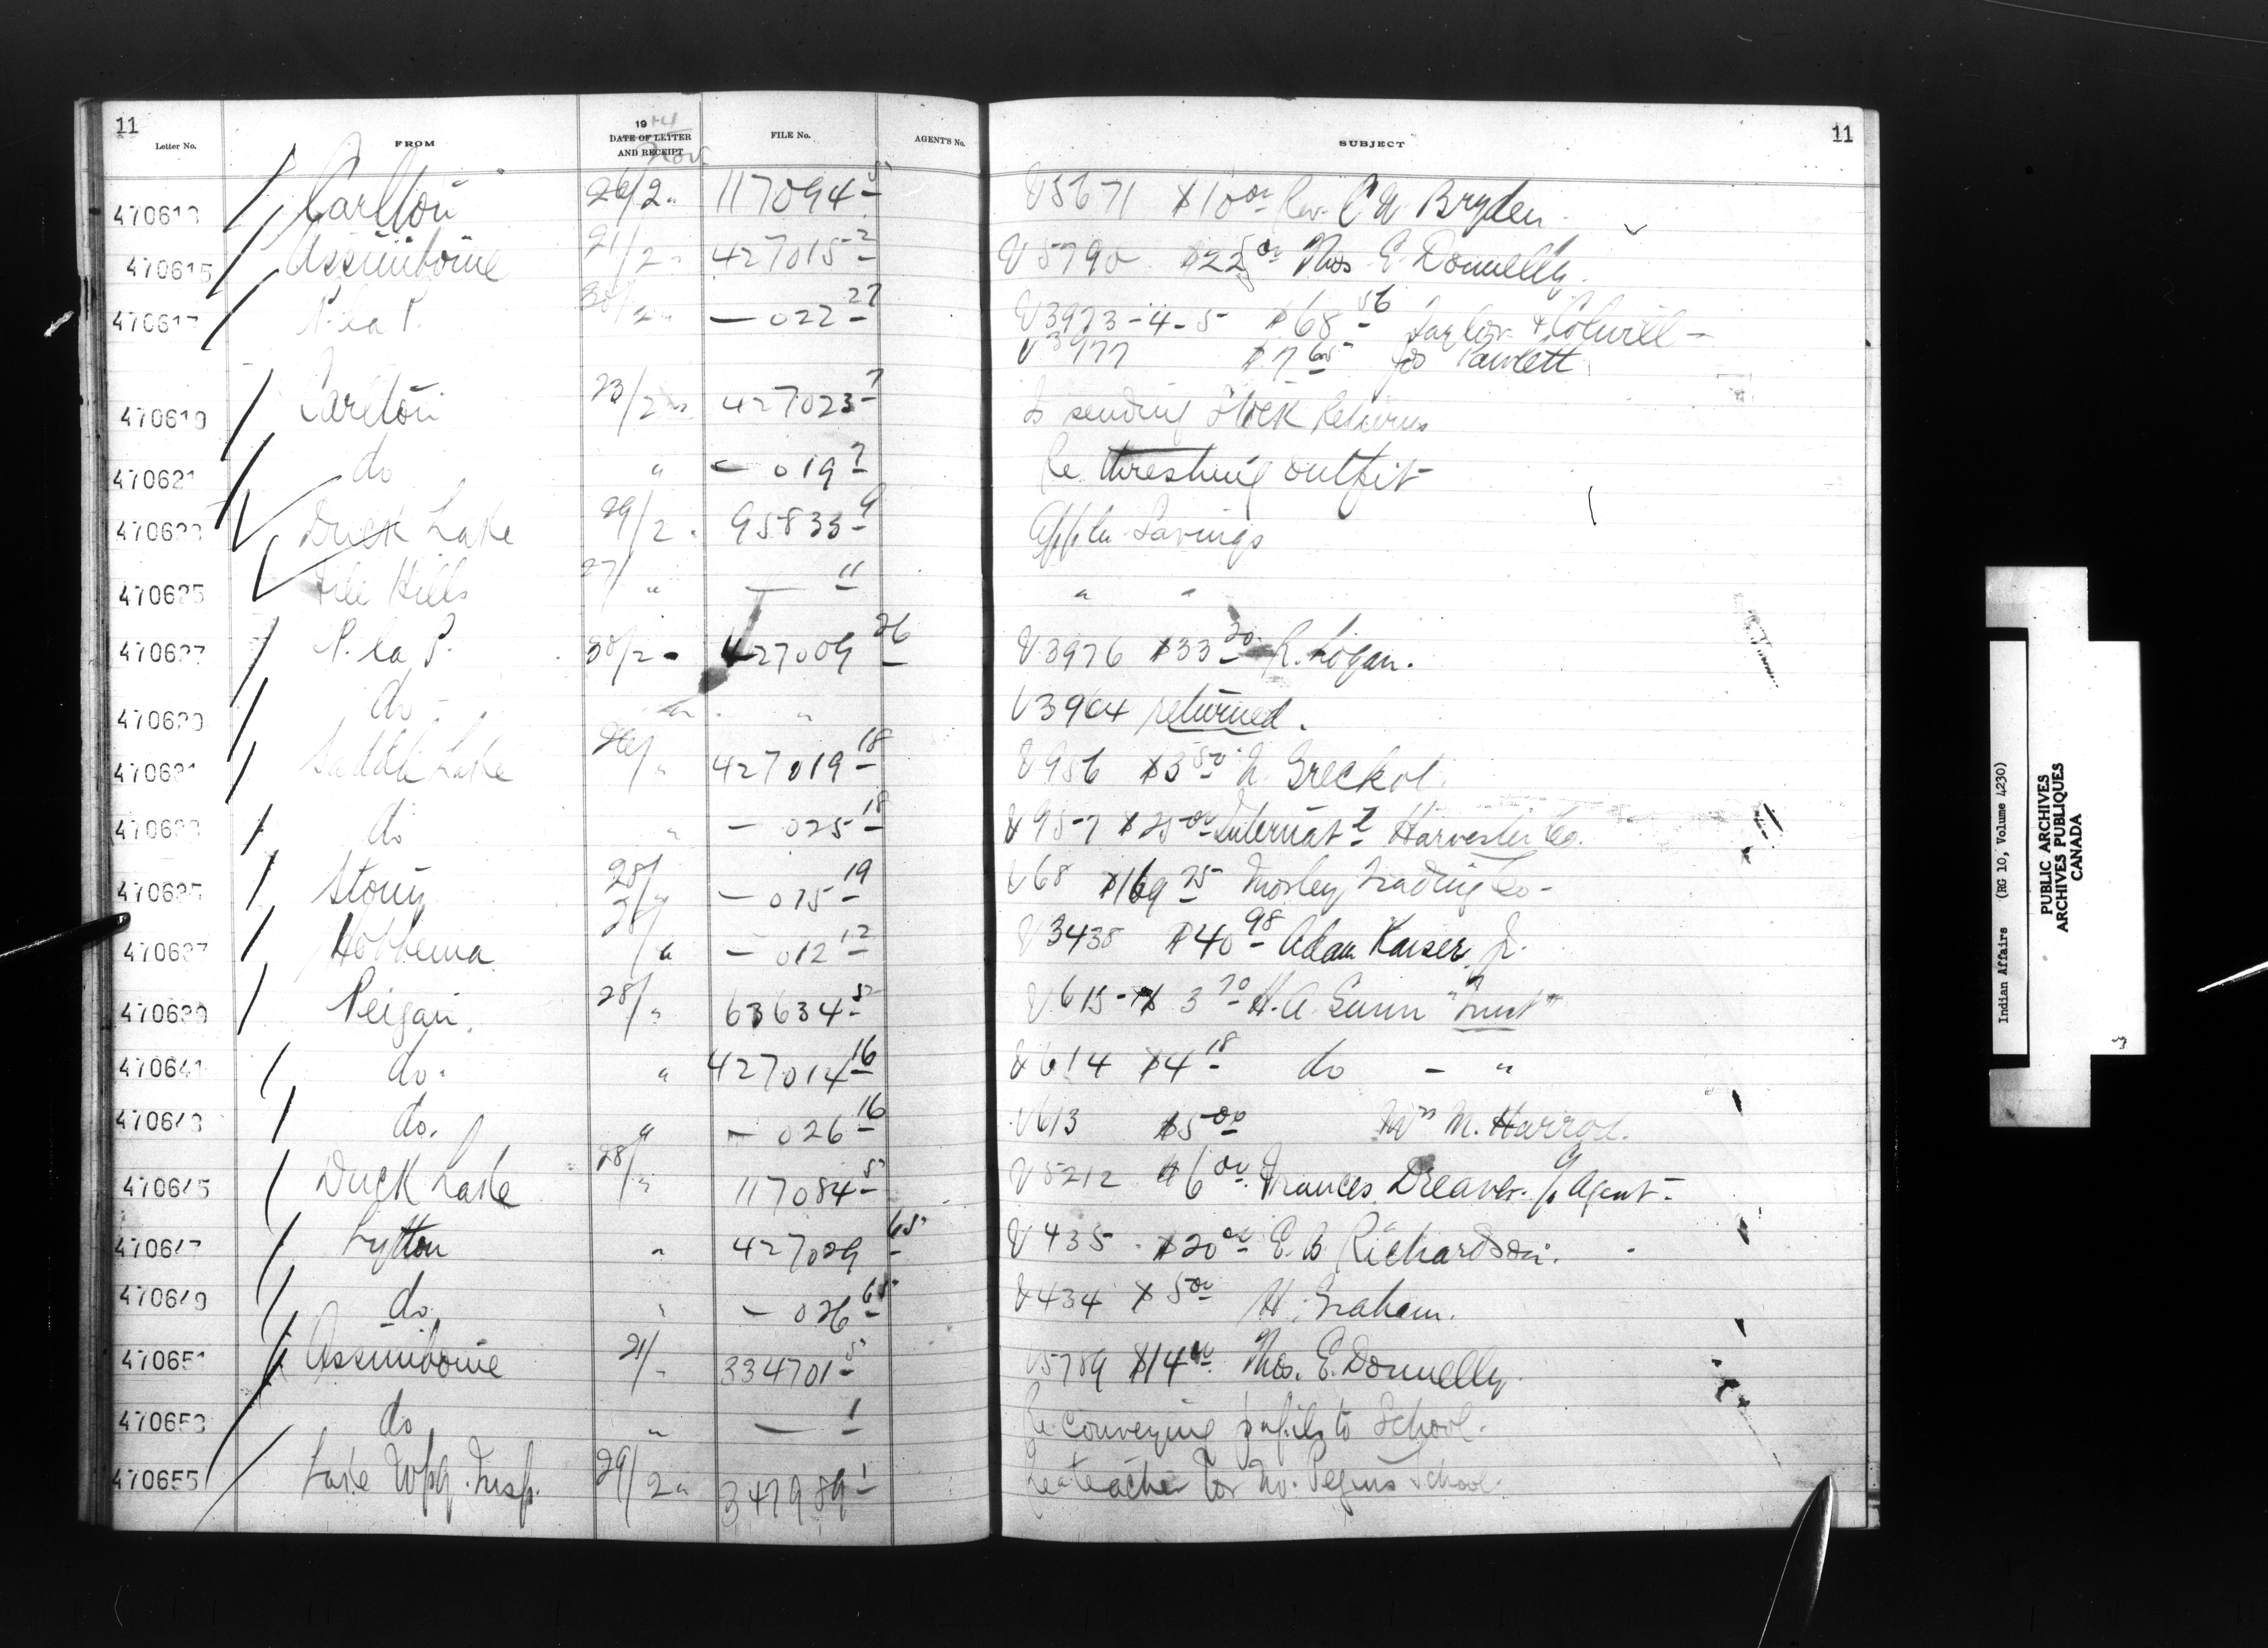 11
11
Letter No. FROM 1914 DATE OF LETTER AND RECEIPT FILE No. AGENT'S No. SUBJECT
Nov.
470613 Carlton 26/2 " 117094-5 V5671 $10 00 Rev. C W Bryden
470615 Assiniboine 21/2 " 427015-2 V5790 $22 50 Thos E. Donnelly.
470617 P. la P. 30/2 " — 022-27 V3973-4-5 $68 56 Taylor & Colwill —
V3977 $7 65 Jos Pawlett
470619 Carlton 23/2 " 427023-7 Is sending Stock Returns
470621 do " — 019-7 Re threshing outfit
470623 Duck Lake 29/2 " 95833-9 Appln Savings
470625 File Hills 27/ " — 11 " "
470627 P. la P. 30/2 " 427009-26 V3976 $33 20 R. Logan.
470629 do " " V3964 returned.
470631 Saddle Lake 26/ " 427019-18 V956 $3 50 N. Greckol.
470633 do " — 025-18 V957 $25 00 Internat'l Harvester Co.
470635 Stony 28/ " — 015-19 V68 $169 25 Morley Trading Co -
470637 Hobbema 28/ " — 012-12 V3438 $40 98 Adam Kaiser Jr.
470639 Peigan. 28/ " 63634-5 V615 $3 70 H. A. Gunn "Trust"
470641 do. " 427014-16 V614 $4 18 do - "
470643 do. " — 026-16 V613 $5 00 Wm M. Harrod.
470645 Duck Lake 28/ " 117084-5 V5212 $6 00 Frances Dreaver. p Agent -
470647 Lytton " 427029-65 V435 $20 00 E. B. Richardson.
470649 do " — 026-65 V434 $5 00 H. Graham.
470651 Assiniboine 21/ " 334701-5 V5789 $14 00 Thos. E. Donnelly.
470653 do " — 1 Re conveying pupils to School.
470655 Lake Wpg. Insp. 29/2 " 347989-1 Re teacher for No. Peguis School.
Indian Affairs (RG 10, Volume 4230)
PUBLIC ARCHIVES
ARCHIVES PUBLIQUES
CANADA